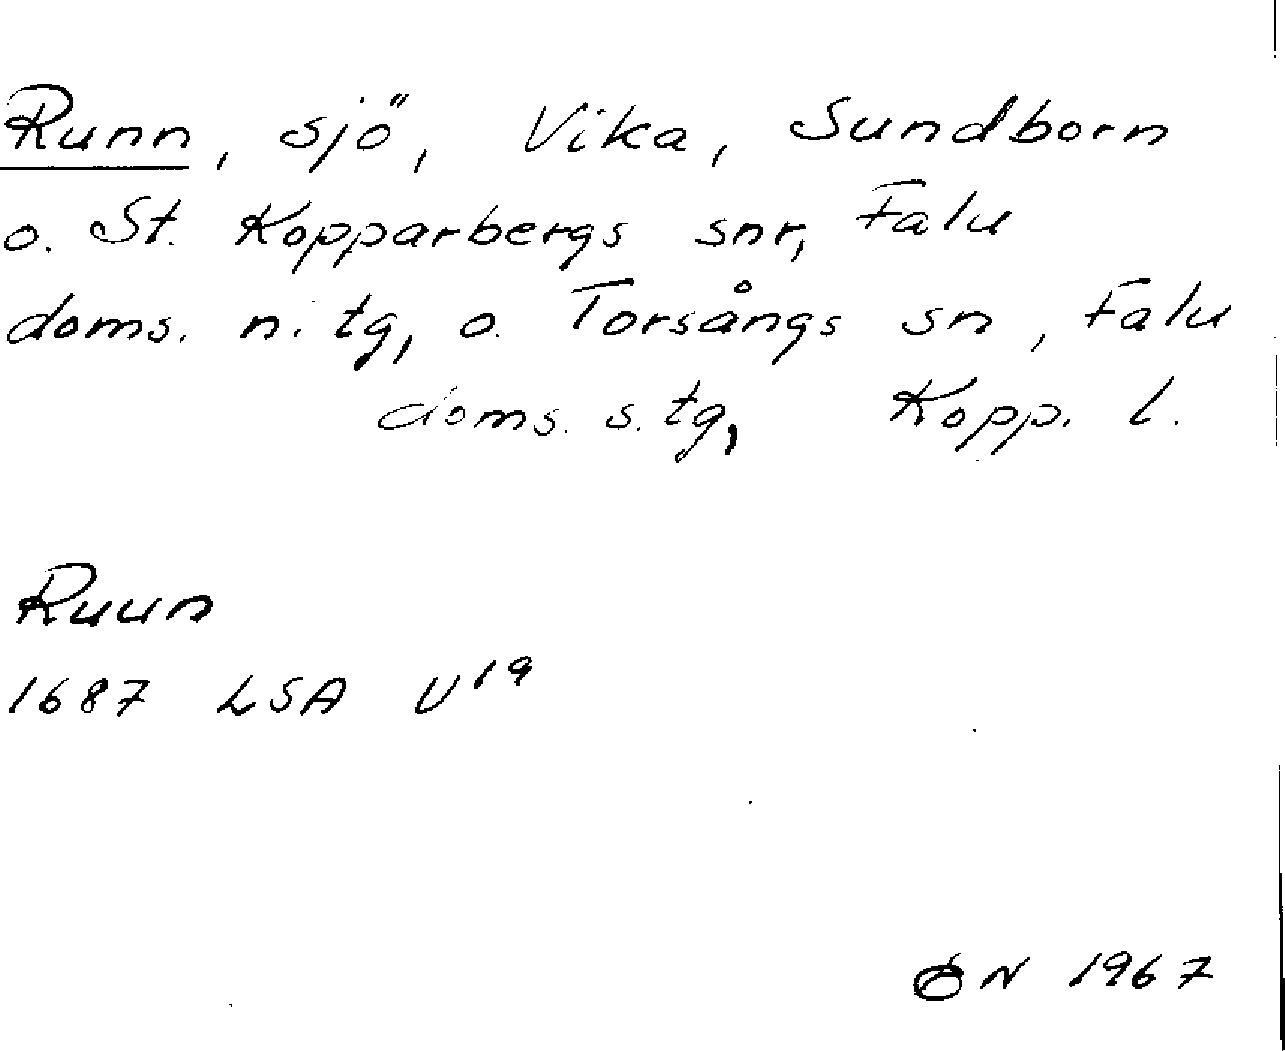 Runn, sjö, Vika, Sundborn
o. St. Kopparbergs snr, Falu
doms. n. tg, o. Torsångs sn, Falu
doms. s. tg, Kopp. l.
Ruun
1687 LSA U19
N 1967